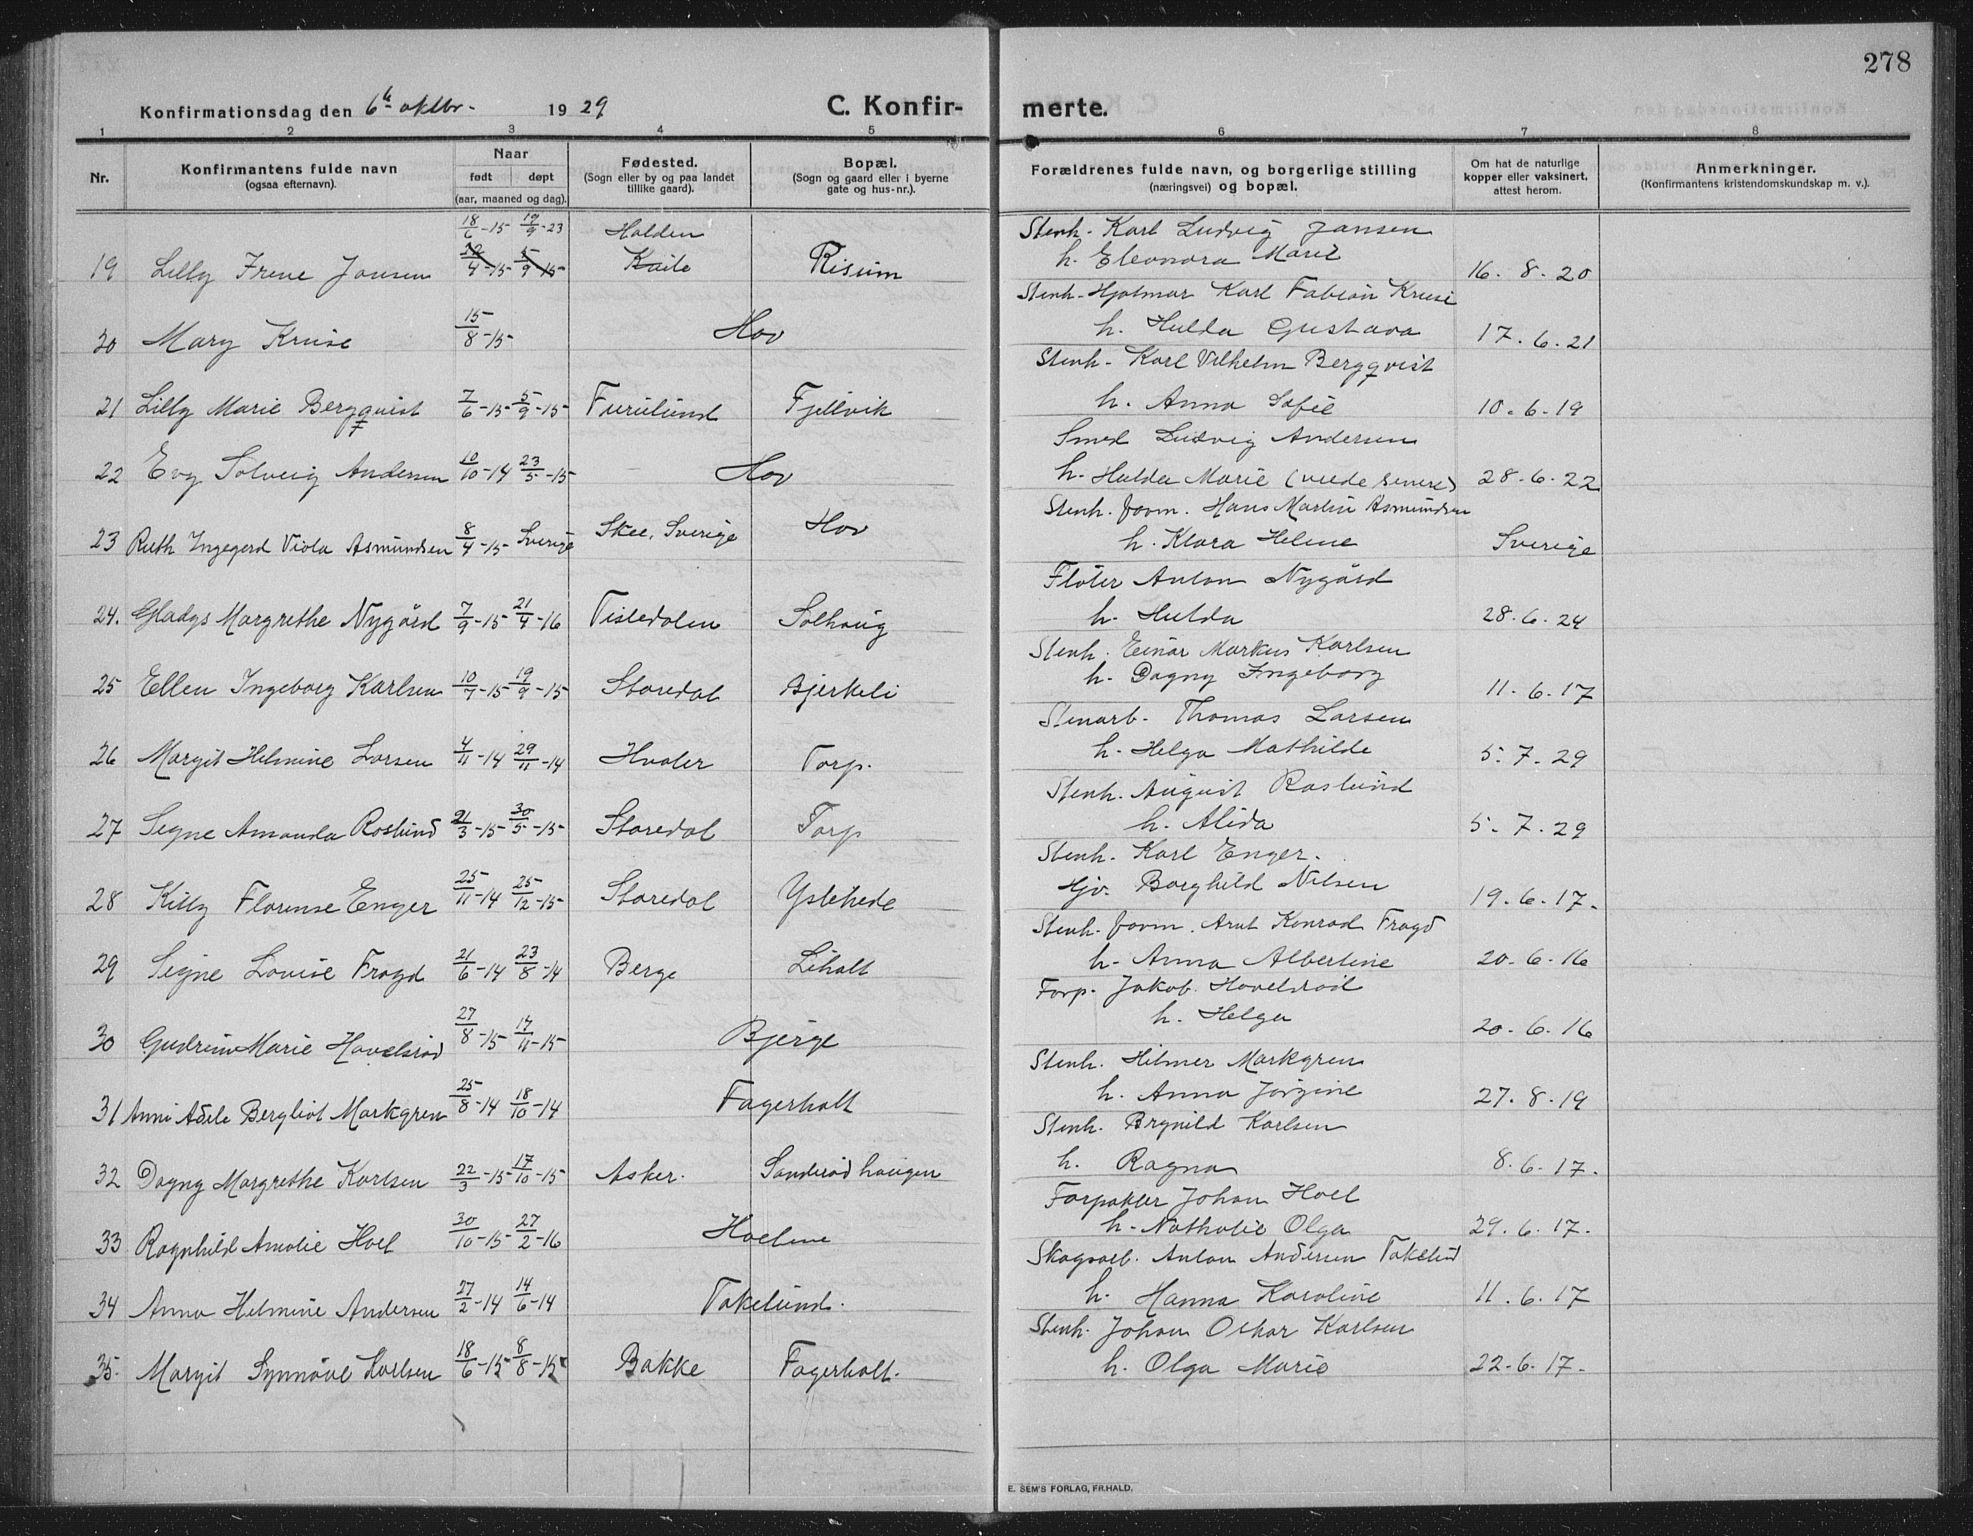 278
Konfirmationsdag den 6te oktbr. 1929 C. Konfirmerte.
1 2 3 4 5 6 7 8
Nr. Konfirmantens fulde navn (ogsaa efternavn). Naar født døpt (aar, maaned og dag). Fødested. (Sogn eller by og paa landet tillike gaard). Bopæl. (Sogn og gaard eller i byerne gate og hus-nr.). Forældrenes fulde navn, og borgerlige stilling (næringsvei) og bopæl. Om hat de naturlige kopper eller vaksinert, attest herom. Anmerkninger. (Konfirmantens kristendomskundskap m. v.).
18/6-15 19/9-23 Halden Stenh. Karl Ludvig Jansen
19 Lilly Irene Jansen /4-15 5/9 15 Risum h. Eleonora Marie 16. 8. 20
Stenh. Hjalmar Karl Fabian Kruse
20 Mary Kruse 15/8-15 Hov h. Hulda Gustava 17. 6. 21
Stenh. Karl Vilhelm Bergqvist
21 Lilly Marie Bergquist 7/6-15 5/9-15 Furulund Fjellvik h. Anna Sofie 10. 6. 19
Smed Ludvig Andersen
22 Evy Solveig Andersen 10/10-14 23/5-15 Hov h. Hulda Marie 28. 6. 22
Stenh. form. Hans Martin Asmundsen
23 Ruth Ingegerd Viola Asmundsen 8/4-15 Sverige Skee, Sverige Hov h. Klara Helene Sverige
Fløter Anton Nygård
24. Gladys Margrethe Nygård 7/9-15 21/4-16 Tistedalen Solhaug h. Hulda 28. 6. 24
Stenh. Einar Markus Karlsen
25 Ellen Ingeborg Karlsen 10/7-15 19/9-15 Storedal Bjerkeli h. Dagny Ingeborg 11. 6. 17
Stenarb. Thomas Larsen
26 Margit Helmine Larsen 4/11-14 29/11-14 Hvaler Torp. h. Helga Mathilde 5. 7. 29
Stenh. August Roslund
27 Signe Amanda Roslund 21/3-15 30/5-15 Storedal Torp h. Alida 5. 7. 29
Stenh. Karl Enger.
28 Kitty Florense Enger 25/11-14 25/12-15 Storedal Ystehede Gjv. Borghild Nilsen 19. 6. 17.
Stenh. form. Arnt Konrad Fragd
29 Signe Lovise Fragd 21/6-14 23/8-14 Berge Liholt h. Anna Albertine 20. 6. 16
Forp. Jakob Hovelsrød
30 Gudrun Marie Hovelsrød 27/8-15 17/11-15 Bjerge h. Helga 20. 6. 16
Stenh. Hilmer Markgren
31 Anni Adele Bergliot Markgren 25/8-14 18/10-14 Fagerholt h. Anna Jørgine 27. 8. 19
Stenh. Brynild Karlsen
32 Dagny Margrethe Karlsen 22/3-15 17/10-15 Asker. Sanderød haugen h. Ragna 8. 6. 17.
Forpakter Johan Hoel
33 Ragnhild Amalie Hoel 30/10-15 27/2-16 Hoelene h. Nathalie Olga 29. 6. 17.
Skogsarb. Anton Andersen Takelund
34 Anna Helmine Andersen 27/2-14 14/6-14 Takelund. h. Hanna Karoline 11. 6. 17
Stenh. Johan Oskar Karlsen
35. Margit Synnøve Karlsen 18/6-15 8/8-15 Bakke Fagerholt. h. Olga Marie 22. 6. 17.
E. SEM'S FORLAG, FR.HALD.